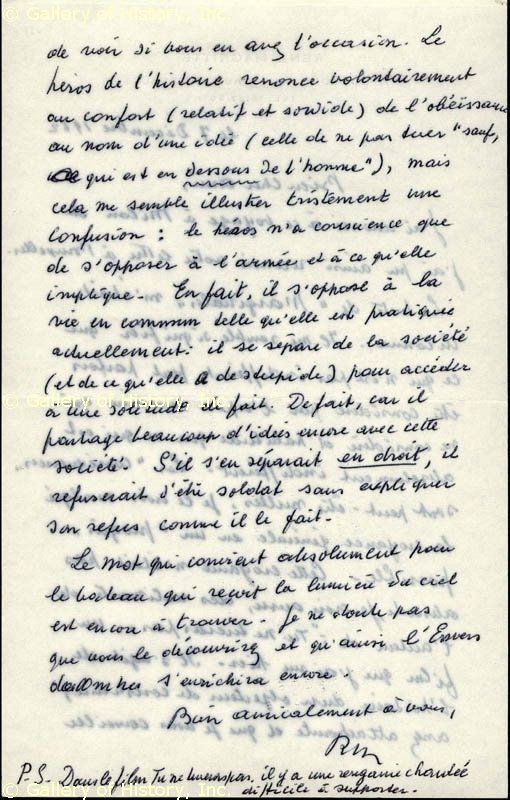 de voir si vous en avez l'occasion. Le
héros de l'histoire renonce volontairement
au confort (relatif et sordide) de l'obéissance
au nom d'une idée (celle de ne pas tuer "sauf,
ce qui est en dessous de l'homme"), mais
cela me semble illustrer tristement une
confusion : le héros n'a conscience que
de s'opposer à l'armée et à ce qu'elle
implique. En fait, il s'oppose à la
vie en commun telle qu'elle est pratiquée
actuellement : il se sépare de la société
(et de ce qu'elle a de stupide) pour accéder
à une solitude de fait. De fait, car il
partage beaucoup d'idées encore avec cette
société. S'il s'en séparait en droit, il
refuserait d'être soldat sans expliquer
son refus comme il le fait.
Le mot qui convient absolument pour
le bateau qui reçoit la lumière du ciel
est encore à trouver. Je ne doute pas
que vous le découvrirez et qu'ainsi l'Envers
des Ombres s'enrichira encore.
Bien amicalement à vous,
RM
P.S. Dans le film Tu ne tueras pas, il y a une rengaine chantée
difficile à supporter.
© Gallery of History, Inc.
© Gallery of History, Inc.
© Gallery of History, Inc.